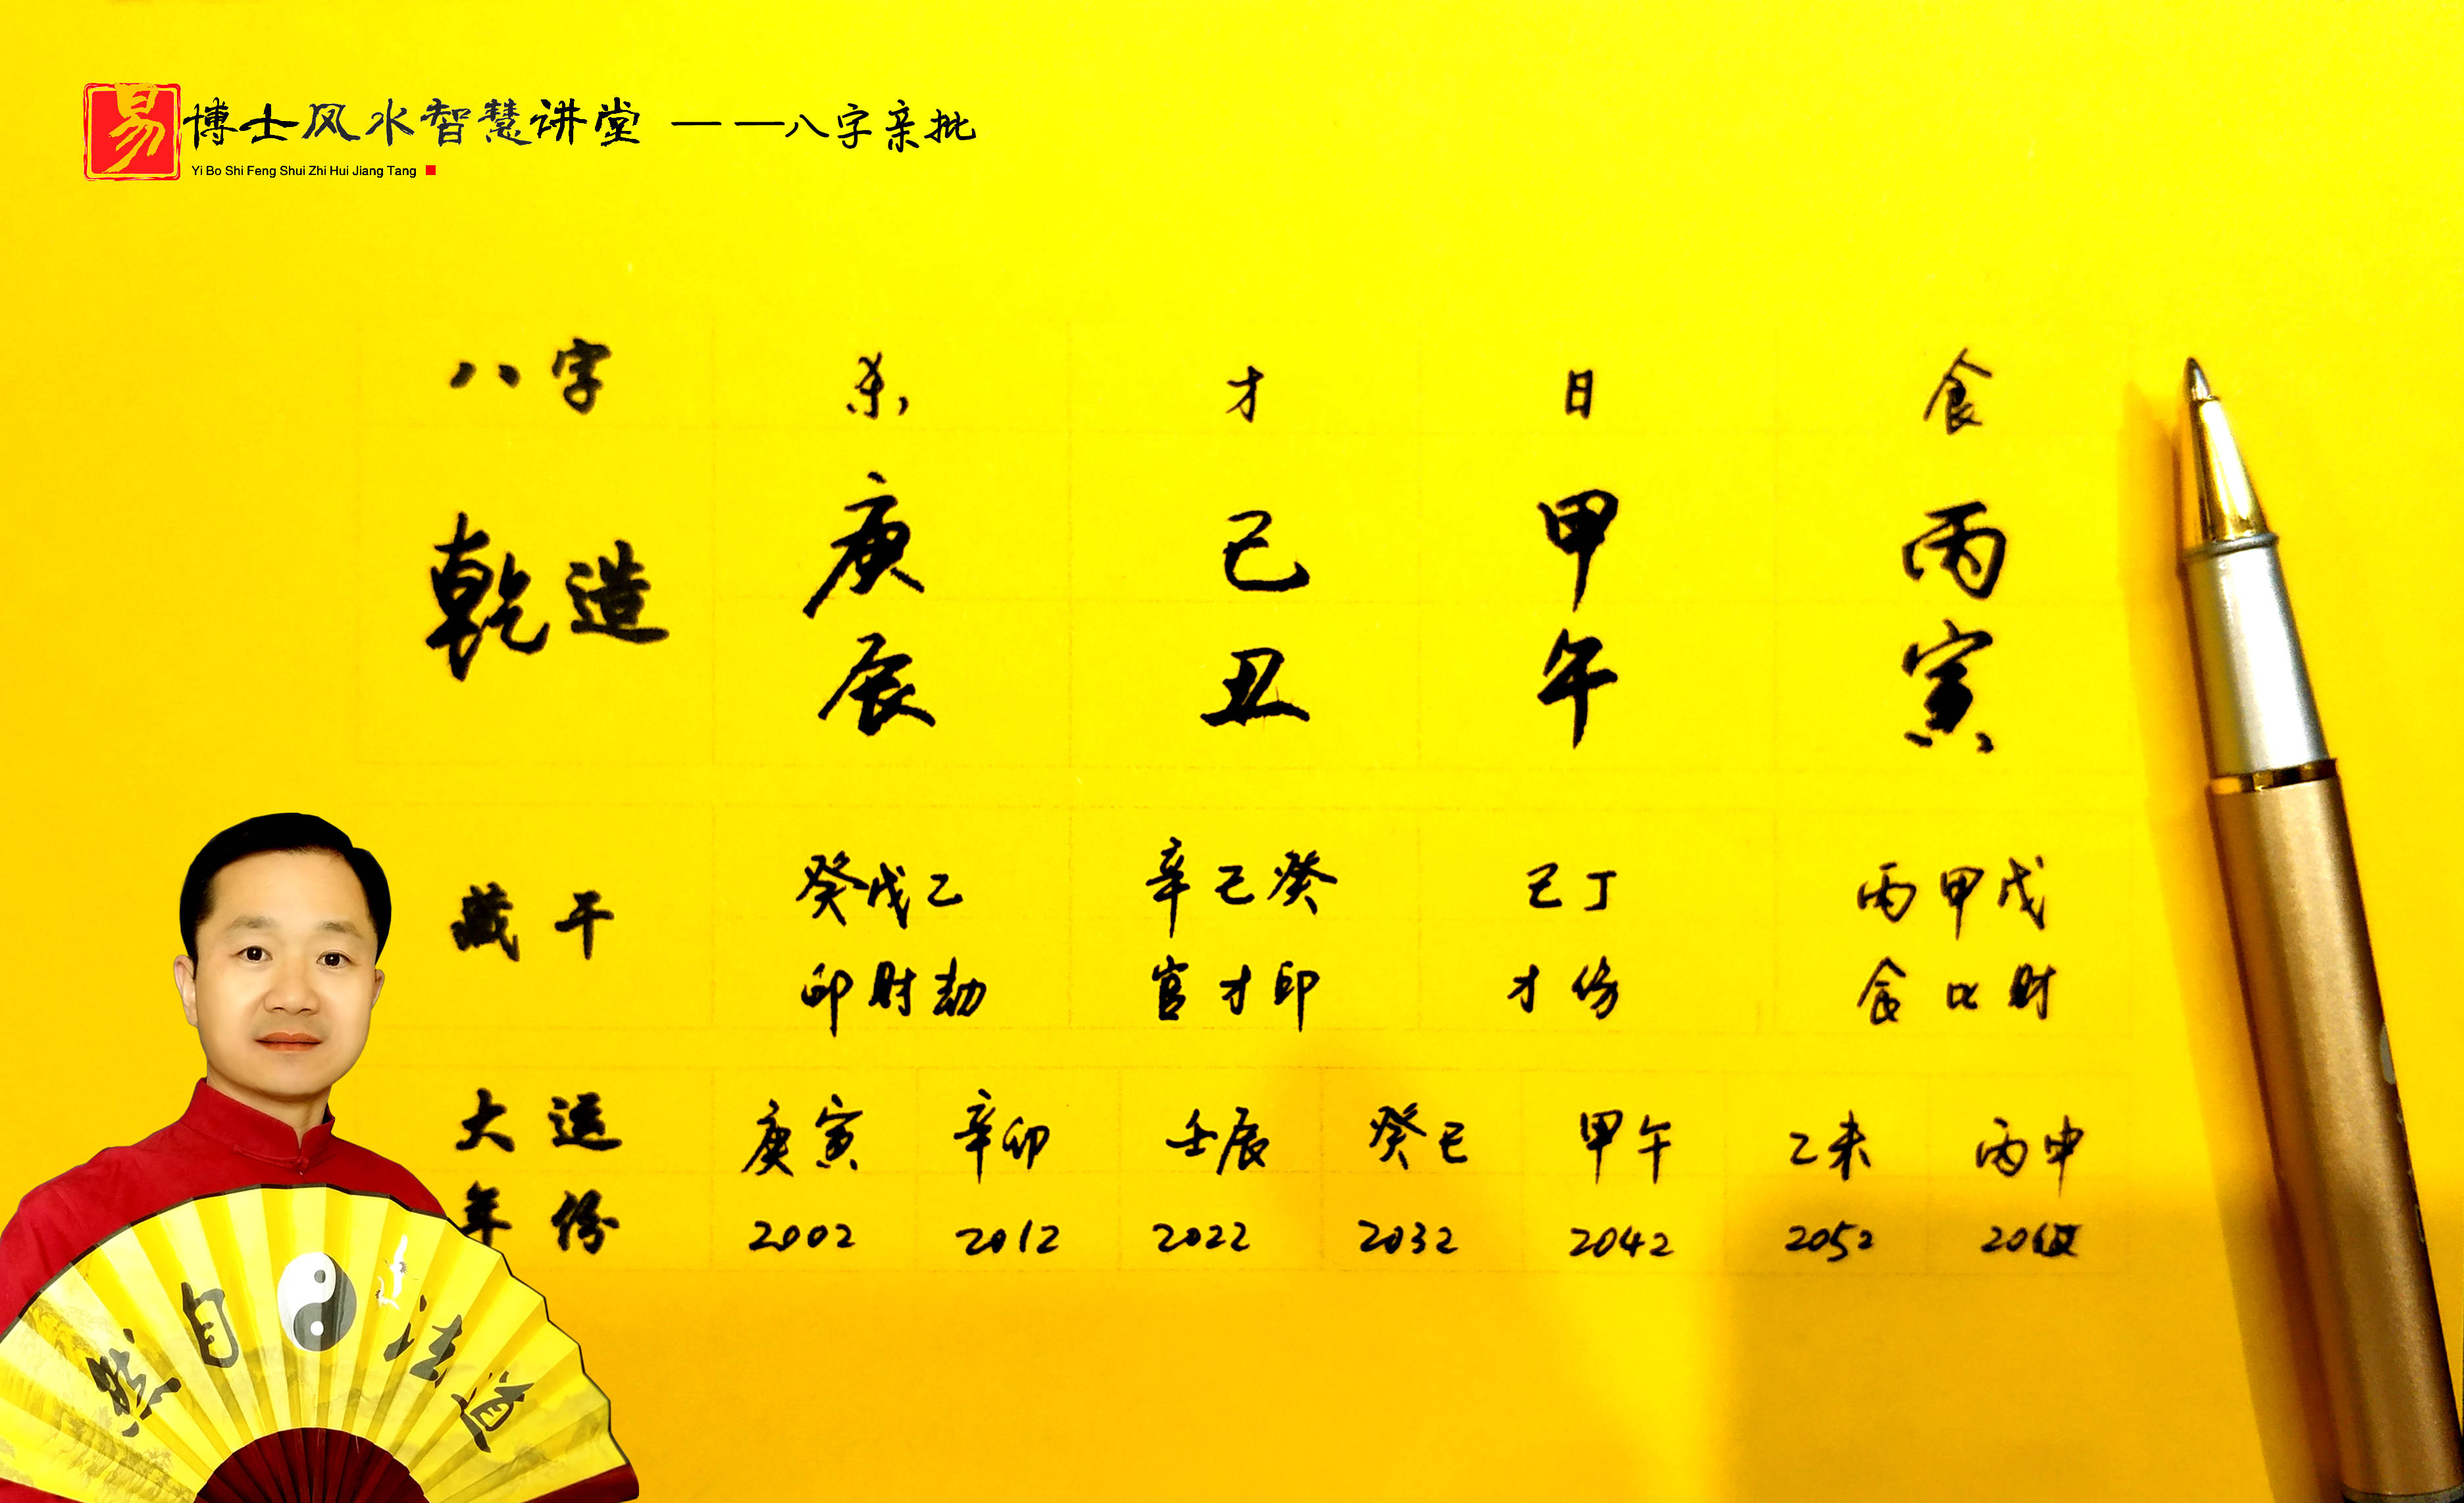 易博士风水智慧讲堂 ——八字亲批
Yi Bo Shi Feng Shui Zhi Hui Jiang Tang
八字 杀 才 日 食
乾造 庚 己 甲 丙
辰 丑 午 寅
藏干 癸戊乙 辛己癸 己丁 丙甲戊
印财劫 官才印 才伤 食比财
大运 庚寅 辛卯 壬辰 癸巳 甲午 乙未 丙申
年份 2002 2012 2022 2032 2042 2052
然自法道